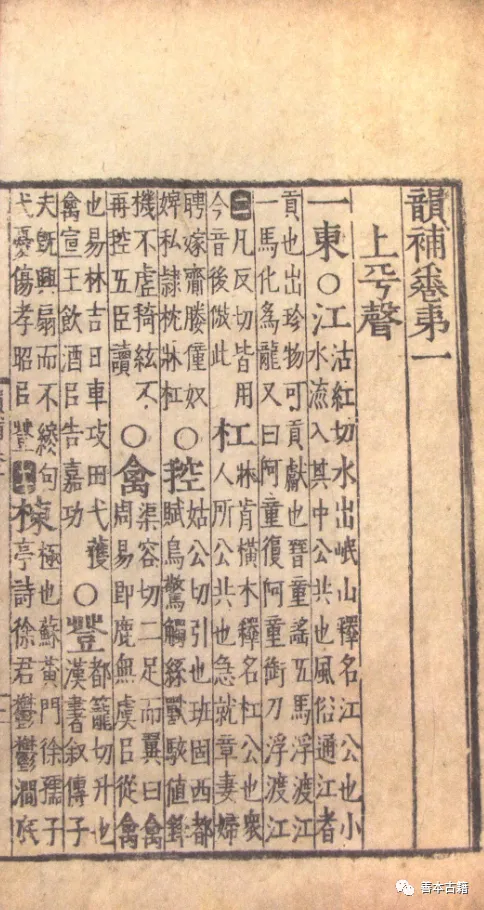 韻補卷弟一
上平聲
一東○江沽紅切水出岷山釋名江公也小
水流入其中公共也風俗通江者
貢也出珍物可貢獻也晉童謠五馬浮渡江
一馬化為龍又曰阿童復阿童銜刀浮渡江
二凡反切皆用
今音後倣此
杠牀肯橫木釋名杠公也衆
人所公共也急就章妻婦
聘嫁齎媵僮奴
婢私隷枕牀杠
○控姑公切引也班固西都
賦鳥驚觸絲獸駭值鋒
機不虛掎絃不
再控五臣讀
○禽渠容切二足而翼曰禽
周易即鹿無虞㠯從禽
也易林吉日車攻田弋獲
禽宣王飲酒㠯告嘉功
○登都籠切升也
漢書敘傳子
夫旣興扇而不終句
弋憂傷孝昭㠯登
棟極也蘇黃門徐孺子
亭詩徐君鬱鬱澗底
善本古籍